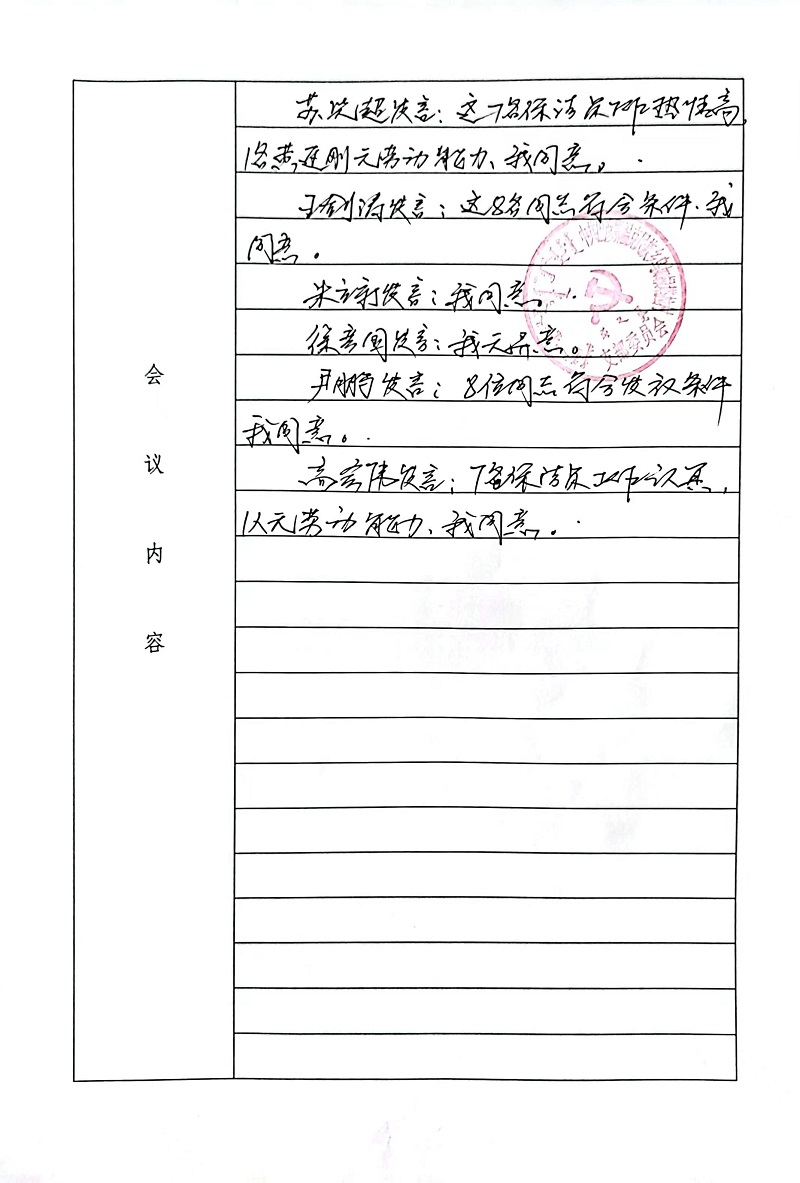 苏 超发言：这7名保洁员工作热情高，
1名 连刚无劳动能力、我同意。
王剑涛发言：这8名同志符合条件.我
同意。
朱立新发言：我同意。
徐彦国发言：我无异意。
尹鹏发言：8位同志符合 条件
我同意。
高宏伟发言：7名保洁员工作认真，
1人无劳动能力、我同意。
会议内容
支部委员会